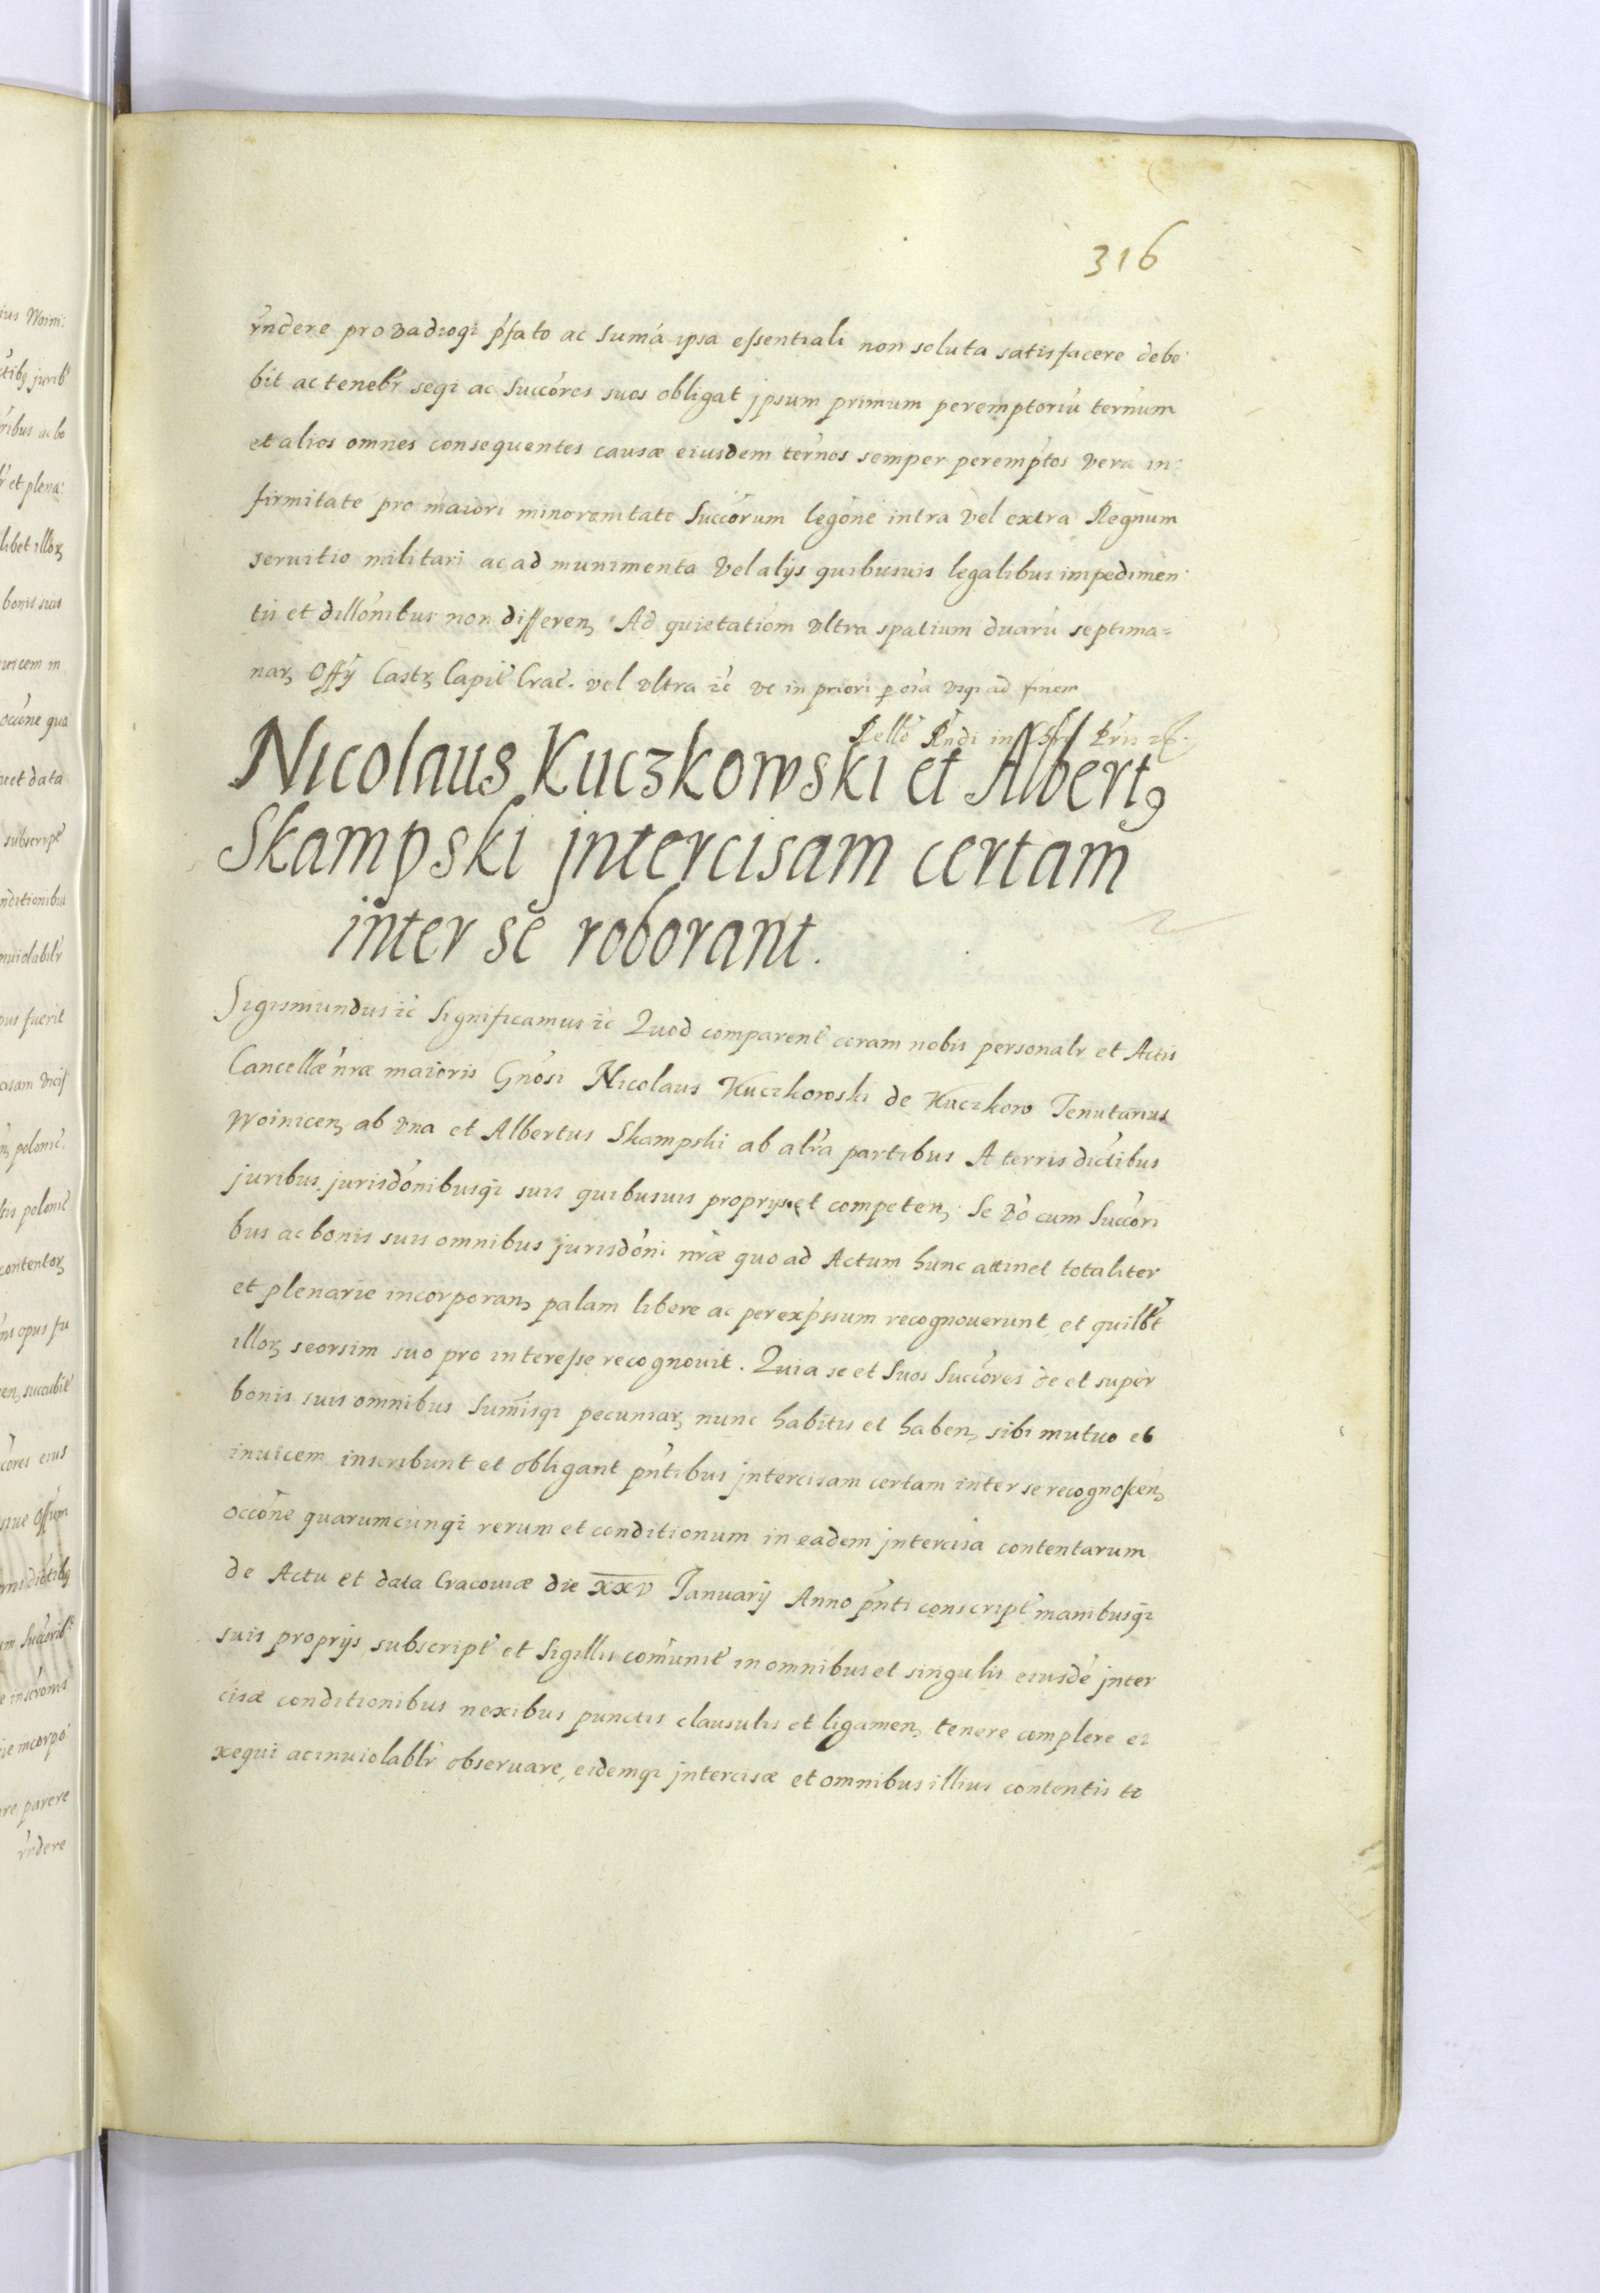 316
rńdere pro vadioqi p̃fato ac Sumá ipsa essentiali non soluta satisfacere debe:
bit ac tenebr̃ seqi ac Succóres suos obligat jpsum primum peremptoriú ternum
et alios omnes consequentes causæ eiusdem térnos semper peremptos vera in:
firmitate pro maiori minorenitate Succórum legóne intra vel extra Regnum
seruitio militari ac ad munimenta vel alijs quibusuis legalibus impedimen:
tis et dillónibus non differen, Ad quietatióm vltra spatium duarú septima=
nar, Offij Castr, Capit̃ Crac̃. vel vltra ꝛc̃ vt in priori p oĩa vsqi ad finem
Nicolaus Kuczkowski et Albert,
Skampski jntercisam certam
inter se roborant.
Sigismundus ꝛc̃ Significamus ꝛc̃ Quod comparent̃ coram nobis personalr̃ et Actis
Cancellæ nræ maioris Gnósi Nicolaus Kuczkowski de Kuczkow Tenutarius
Woinicen, ab vna et Albertus Skampski ab altra partibus A terris dictibus
juribus jurisdónibusqi suis quibusuis proprijs et competen, Se vó cum Succóri
bus ac bonis suis omnibus jurisdóni nræ quo ad Actum hunc attinet totaliter
et plenarie incorporan, palam libere ac per exp̃ssum recognouerunt, et quilb́t
illor, seorsim suo pro interesse recognouit. Quia se et Suos Succóres de et super
bonis suis omnibus Sumĩsqi pecuniar, nunc habitis et haben, sibi mutuo et
inuicem inscribunt et obligant pńtibus jntercisam certam inter se recognoscen,
occóne quarumcunqi rerum et conditionum in eadem jntercisa contentarum
de Actu et data Cracouiæ die XXV Januarij Anno pńti conscript̃ manibusqi
suis proprijs subscript̃ et Sigillis comúnit̃ in omnibus et singulis eiusdé jnter
cisæ conditionibus nexibus punctis clausulis et ligamen, tenere complere ei
xequi ac inuiolablr̃ obseruare, eidemqi jntercisæ et omnibus illius contentis to